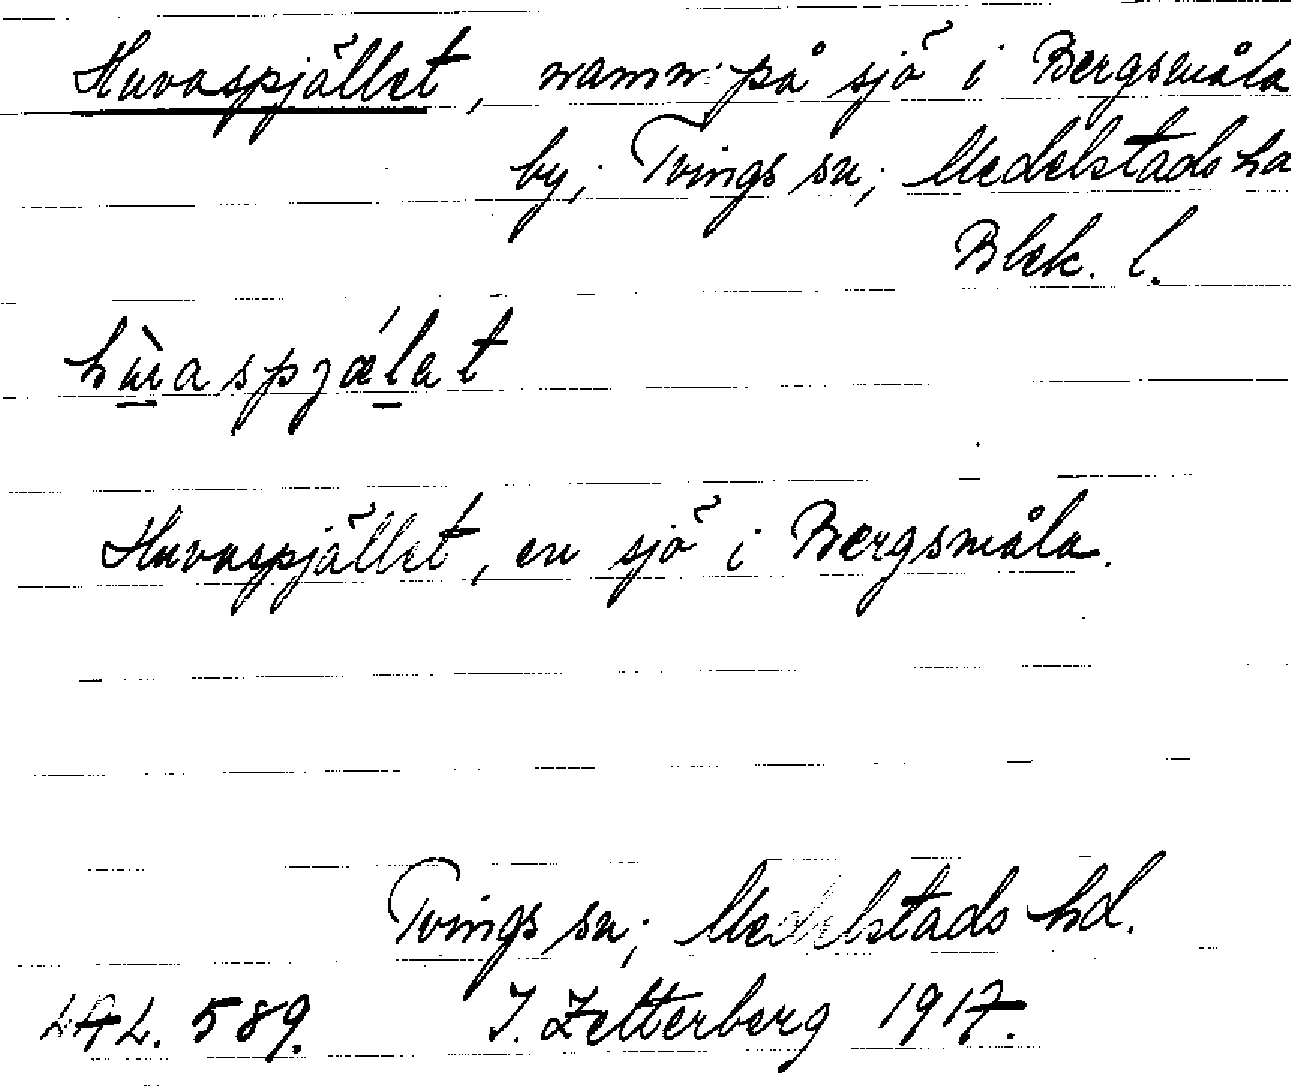 Huvaspjället, namn på sjö i Bergsmåla
by; Tvings sn; Medelstads hd
Blek. l.
Huvaspjället, en sjö i Bergsmåla.
Tvings sn; Medelstads hd.
LAL. 589. I. Zetterberg 1917.